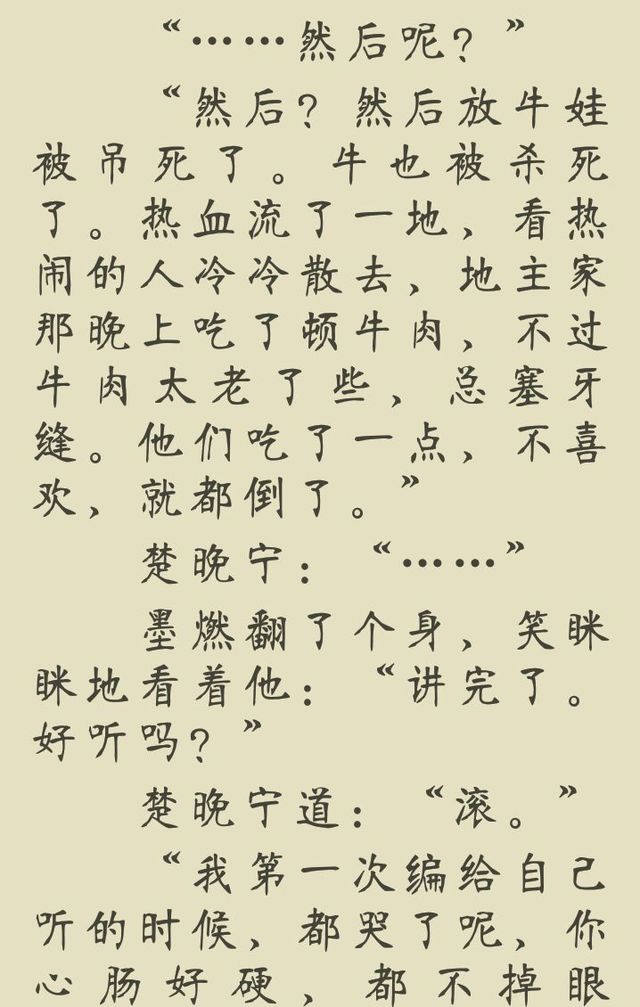 “……然后呢？”
“然后？然后放牛娃
被吊死了。牛也被杀死
了。热血流了一地，看热
闹的人冷冷散去，地主家
那晚上吃了顿牛肉，不过
牛肉太老了些，总塞牙
缝。他们吃了一点，不喜
欢，就都倒了。”
楚晚宁：“……”
墨燃翻了个身，笑眯
眯地看着他：“讲完了。
好听吗？”
楚晚宁道：“滚。”
“我第一次编给自己
听的时候，都哭了呢，你
心肠好硬，都不掉眼